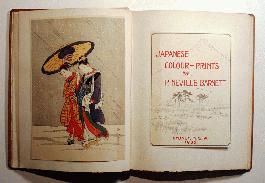 JAPANESE
COLOUR-PRINTS
BY
P. NEVILLE BARNETT
SYDNEY, N.S.W.
1936